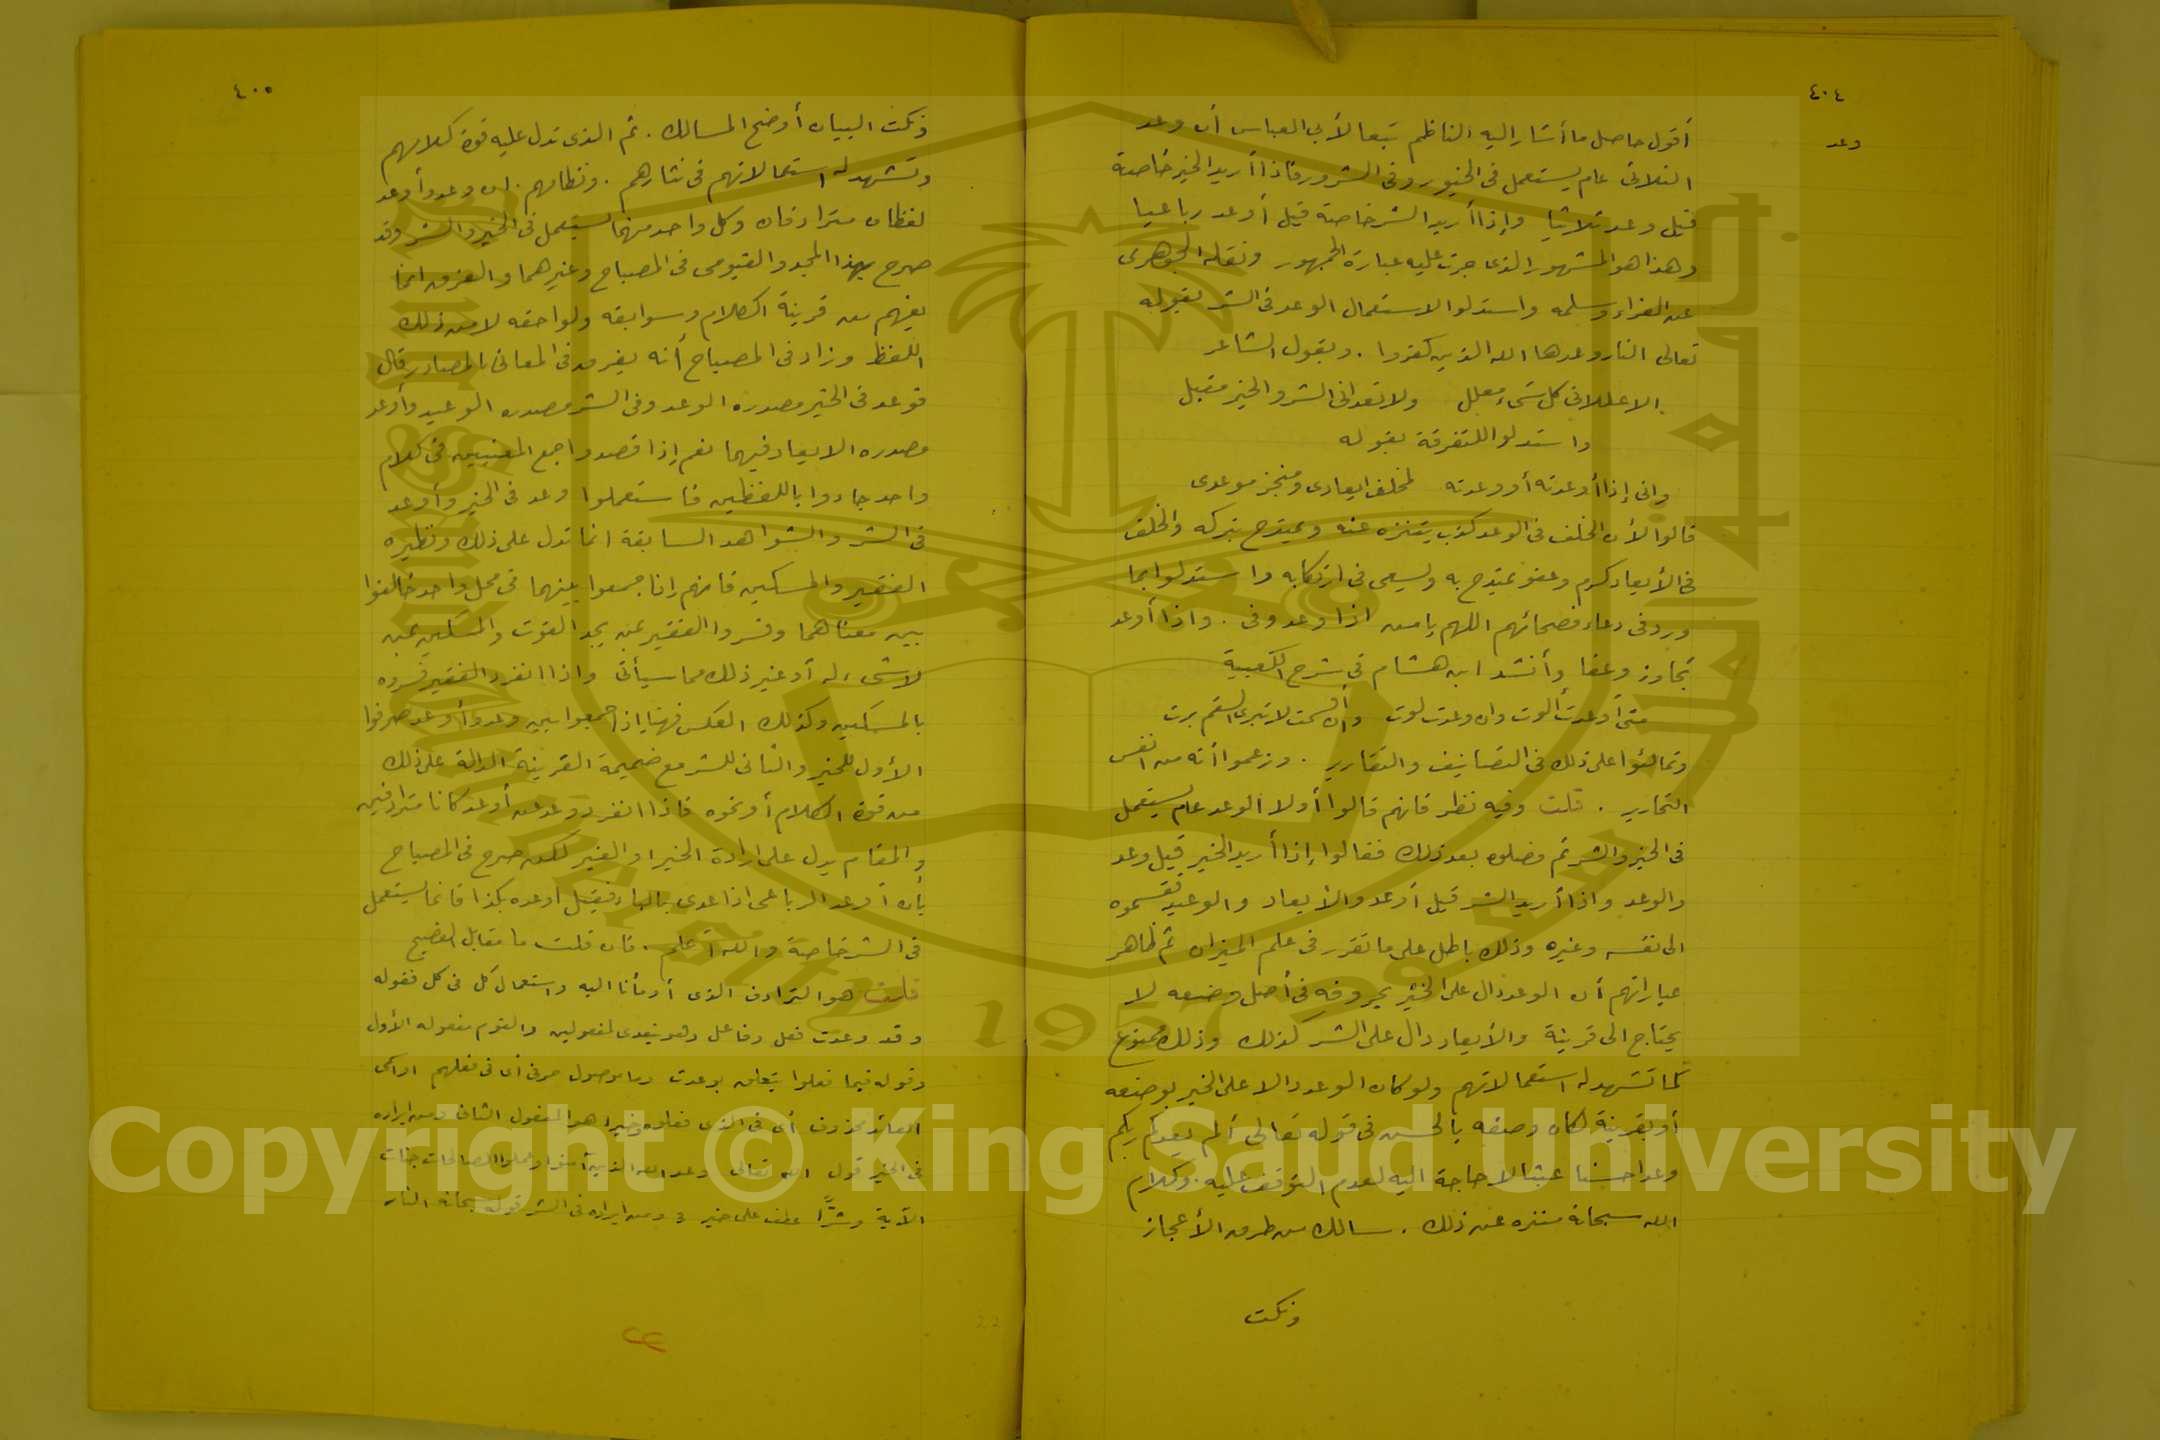 ٤٠٤
وعد
أقول حاصل ما أشار اليه الناظم تبعا لأبي العباس أن وعد
الثلاثى عام يستعمل فى الخيور وفى الشرور فاذا أريد الخير خاصة
قيل وعد ثلاثيا وإذا أريد الشر خاصة قيل أوعد رباعيا
وهذا هو المشهور الذى جرت عليه عبارة الجمهور ونقله الجوهرى
عن الفراء وسلمه واستدلوا لاستعمال الوعد فى الشر بقوله
تعالى النار وعدها الله الذين كفروا . وبقول الشاعر
الا عللانى كل شىء معلل ولا تعدانى الشر والخير مقبل
واستدلوا للتفرقة بقوله
وانى إذا أوعدته أو وعدته لمخلف ايعادى ومنجز موعدى
قالوا لأن الخلف فى الوعد كذب يتنزه عنه ويمتدح بتركه والخلف
فى الأيعاد كرم وعفو يمتدح به ويسعى فى ارتكابه واستدلوا بما
ورد فى دعاء فصحائهم اللهم يا من اذا وعد وفى . واذا أوعد
تجاوز وعفا وأنشد ابن هشام فى شرح الكعبية
متى أوعدت ألوت وان وعدت لوت وان أقسمت لا تبرى السقم برت
وتمالئوا على ذلك فى التصانيف والتقارير . وزعموا أنه من انفس
التحارير . قلت وفيه نظر فانهم قالوا أولا الوعد عام يستعمل
فى الخير والشر ثم فصلوه بعد ذلك فقالوا إذا أريد الخير قيل وعد
والوعد واذا أريد الشر قيل أوعد والأيعاد والوعيد فقسموه
الى نفسه وغيره وذلك باطل على ما تقرر فى علم الميزان ثم ظاهر
عباراتهم أن الوعد دال على الخير بحروفه فى أصل وضعه لا
يحتاج الى قرينة والأيعاد دال على الشر كذلك وذلك ممنوع
كما تشهد له استعمالاتهم ولو كان الوعد دالا على الخير بوضعه
أو بقرينة لكان وصفه بالحسن فى قوله تعالى ألم يعدكم ربكم
وعدا حسنا عبثا لا حاجة اليه لعدم التوقف عليه . وكلام
الله سبحانه منزه عن ذلك . سالك من طرق الأعجاز
ونكت
٤٠٥
ونكت البيان أوضح المسالك . ثم الذى تدل عليه قوة كلامهم
وتشهد له استعمالاتهم فى نثارهم . ونظامهم . ان وعد وأوعد
لفظان مترادفان وكل واحد منهما يستعمل فى الخير والشر وقد
صرح بهذا المجد والفيومى فى المصباح وغيرهما والفرق انما
يفهم من قرينة الكلام وسوابقه ولواحقه لا من ذلك
اللفظ وزاد فى المصباح أنه يفرق فى المعانى بالمصادر قال
فوعد فى الخير مصدره الوعد وفى الشر مصدره الوعيد وأوعد
مصدره الايعاد فيهما نعم إذا قصدوا جمع المعنيين فى كلام
واحد جاءوا باللفظين فاستعملوا وعد فى الخير وأوعد
فى الشر والشواهد السابقة انما تدل على ذلك ونظيره
الفقير والمسكين فانهم إذا جمعوا بينهما فى محل واحد خالفوا
بين معناهما وفسروا الفقير بمن يجد القوت والمسكين بمن
لا شىء له أو غير ذلك مما سيأتى واذا انفرد الفقير فسروه
بالمسكين وكذلك العكس فهنا إذا جمعوا بين وعد وأوعد صرفوا
الأول للخير والثانى للشر مع ضميمة القرينة الدالة على ذلك
من قوة الكلام أو نحوه فاذا انفرد وعد عن أوعد كانا مترادفين
والمقام يدل على ارادة الخير او الغير لكن صرح فى المصباح
بأن أوعد الرباعى اذا عدى بالباء فقيل أوعده بكذا فانما يستعمل
فى الشر خاصة والله أعلم . فان قلت ما مقابل الفصيح
قلت هو الترادف الذى أومأنا اليه واستعمال كل فى كل فقوله
وقد وعدت فعل وفاعل وهو يتعدى لمفعولين والقوم مفعوله الأول
وقوله فيما فعلوا يتعلق بوعدت وما موصول حرفى أى فى فعلهم او اسمى
العائد محذوف أى فى الذى فعلوه وخيرا هو المفعول الثانى ومن ايراده
فى الخير قول الله تعالى وعد الله الذين آمنوا وعملوا الصالحات جنات
الآية وشرًّا عطف على خير ومن ايراده فى الشر قوله سبحانه النار
جامعة الملك سعود
King Saud University
1957
Copyright © King Saud University